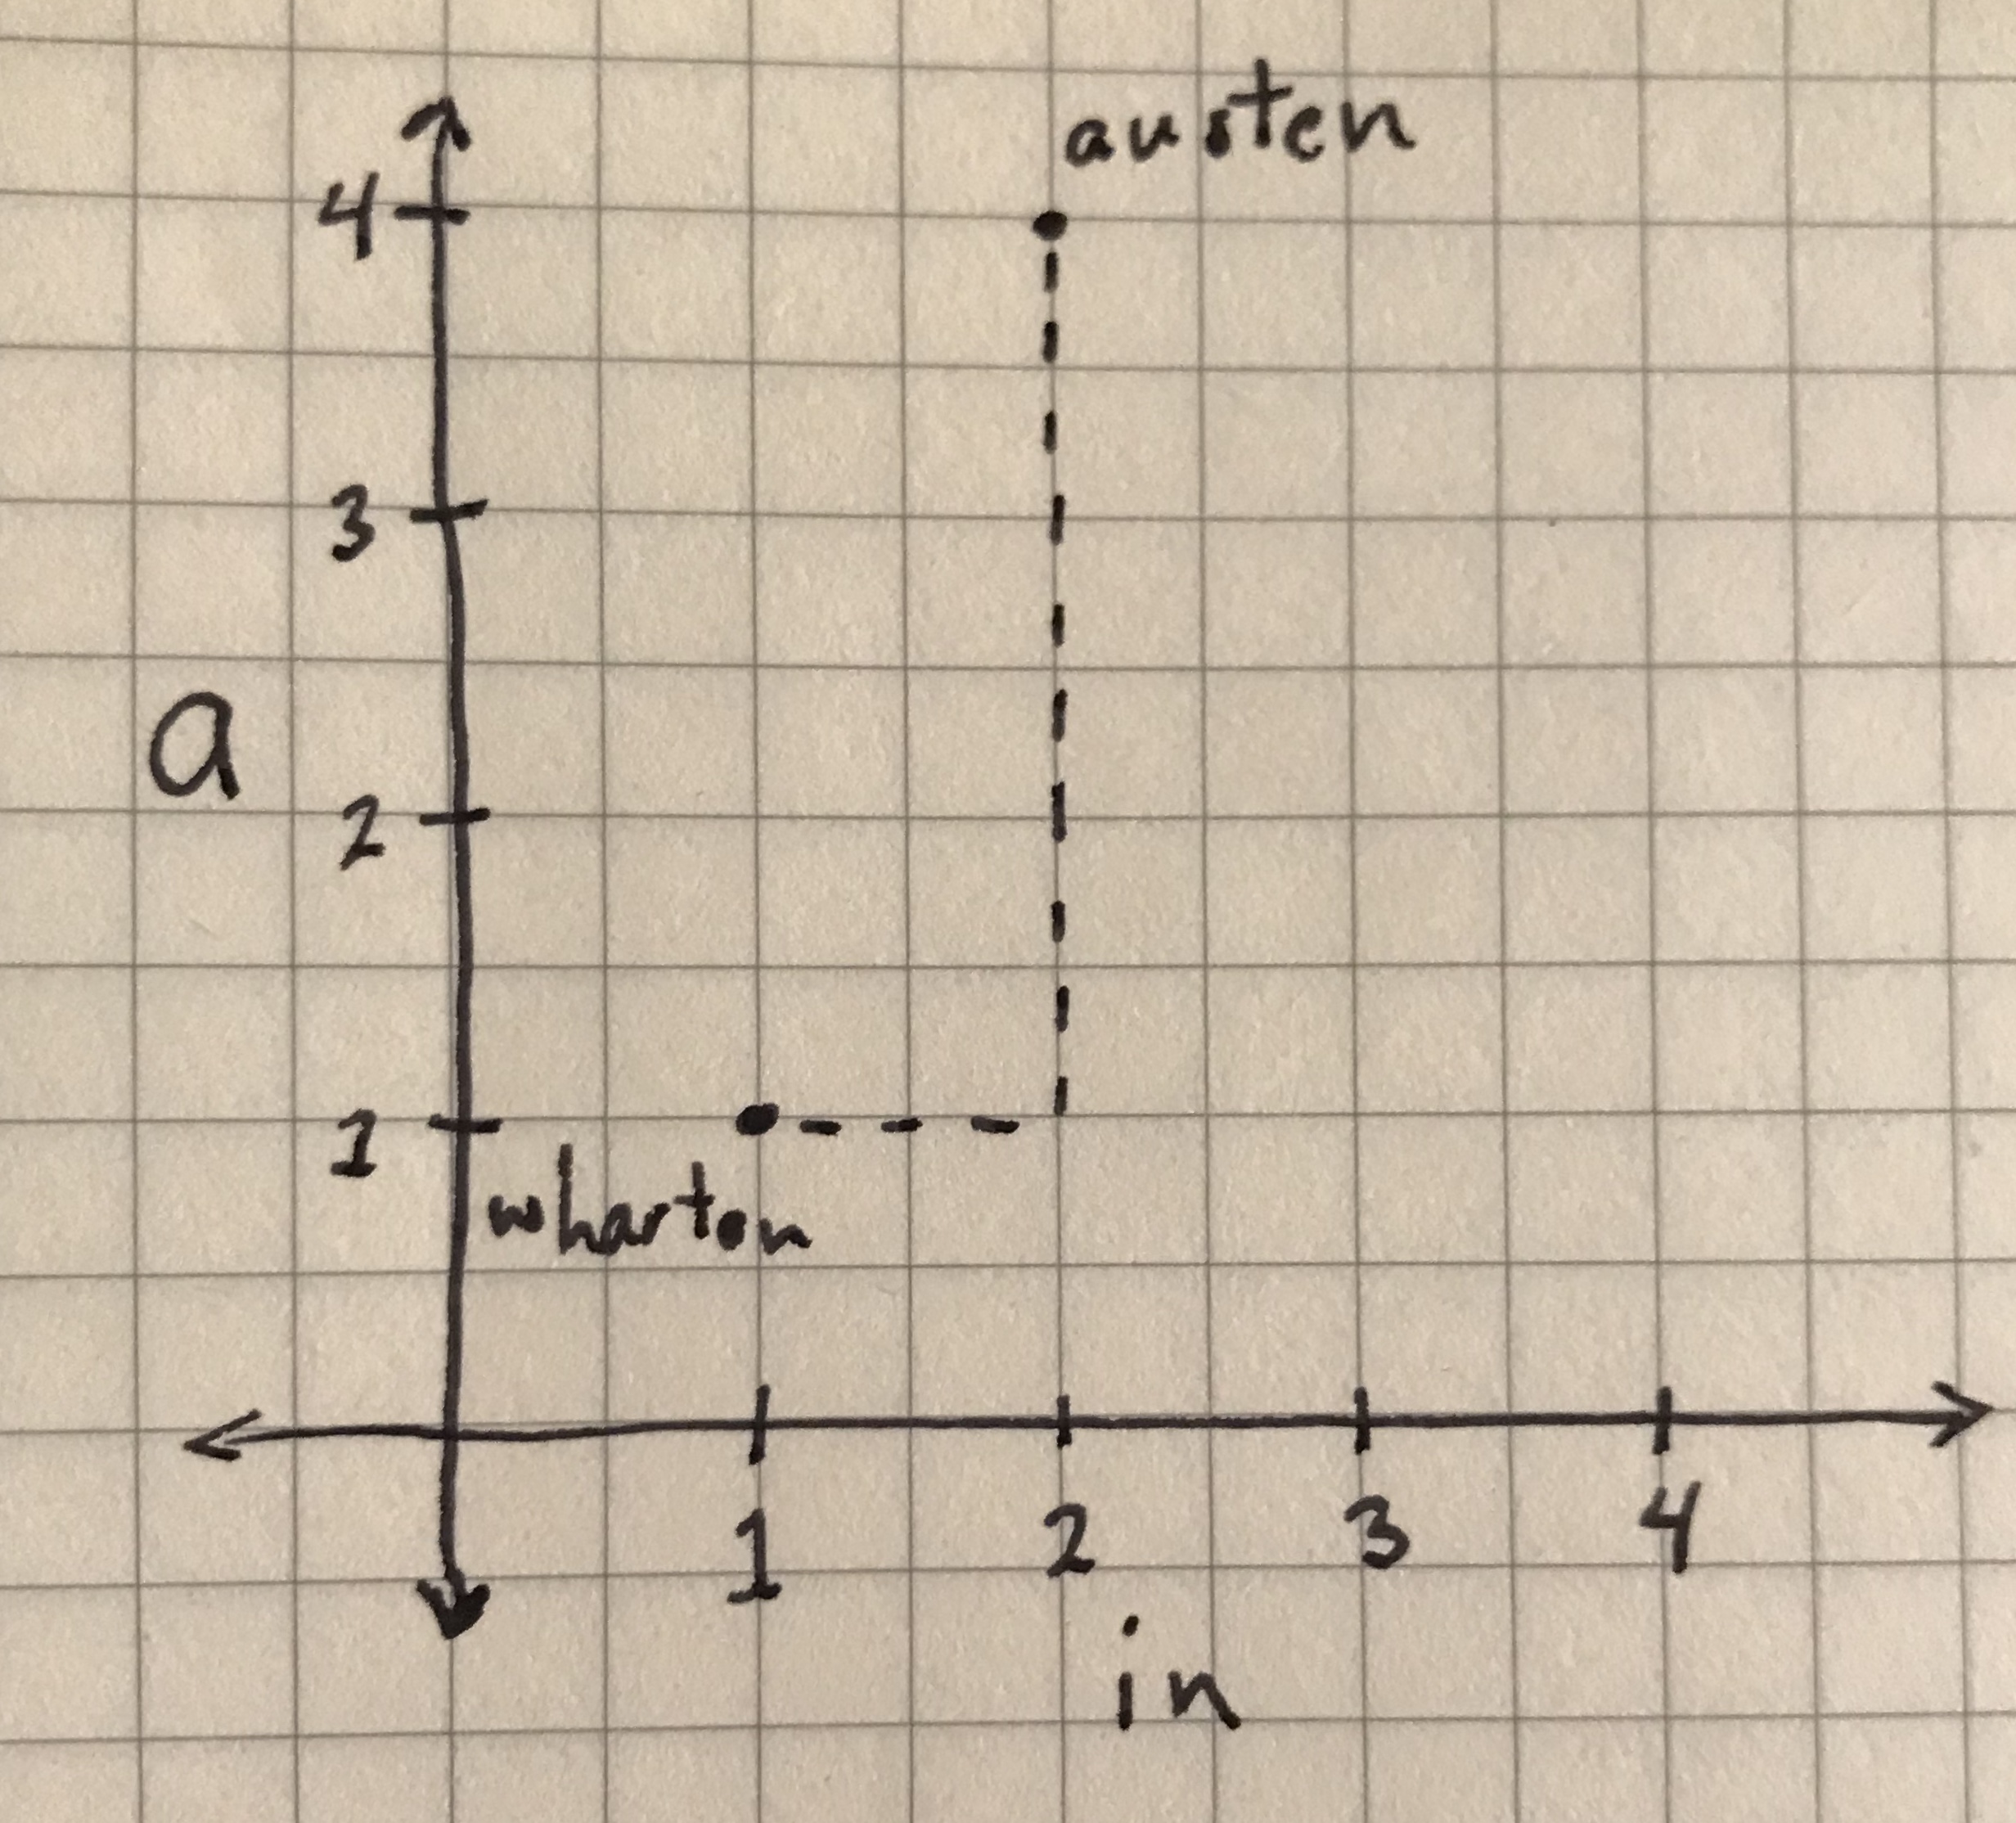 austen
4
3
a
2
1
wharton
1 2 3 4
in